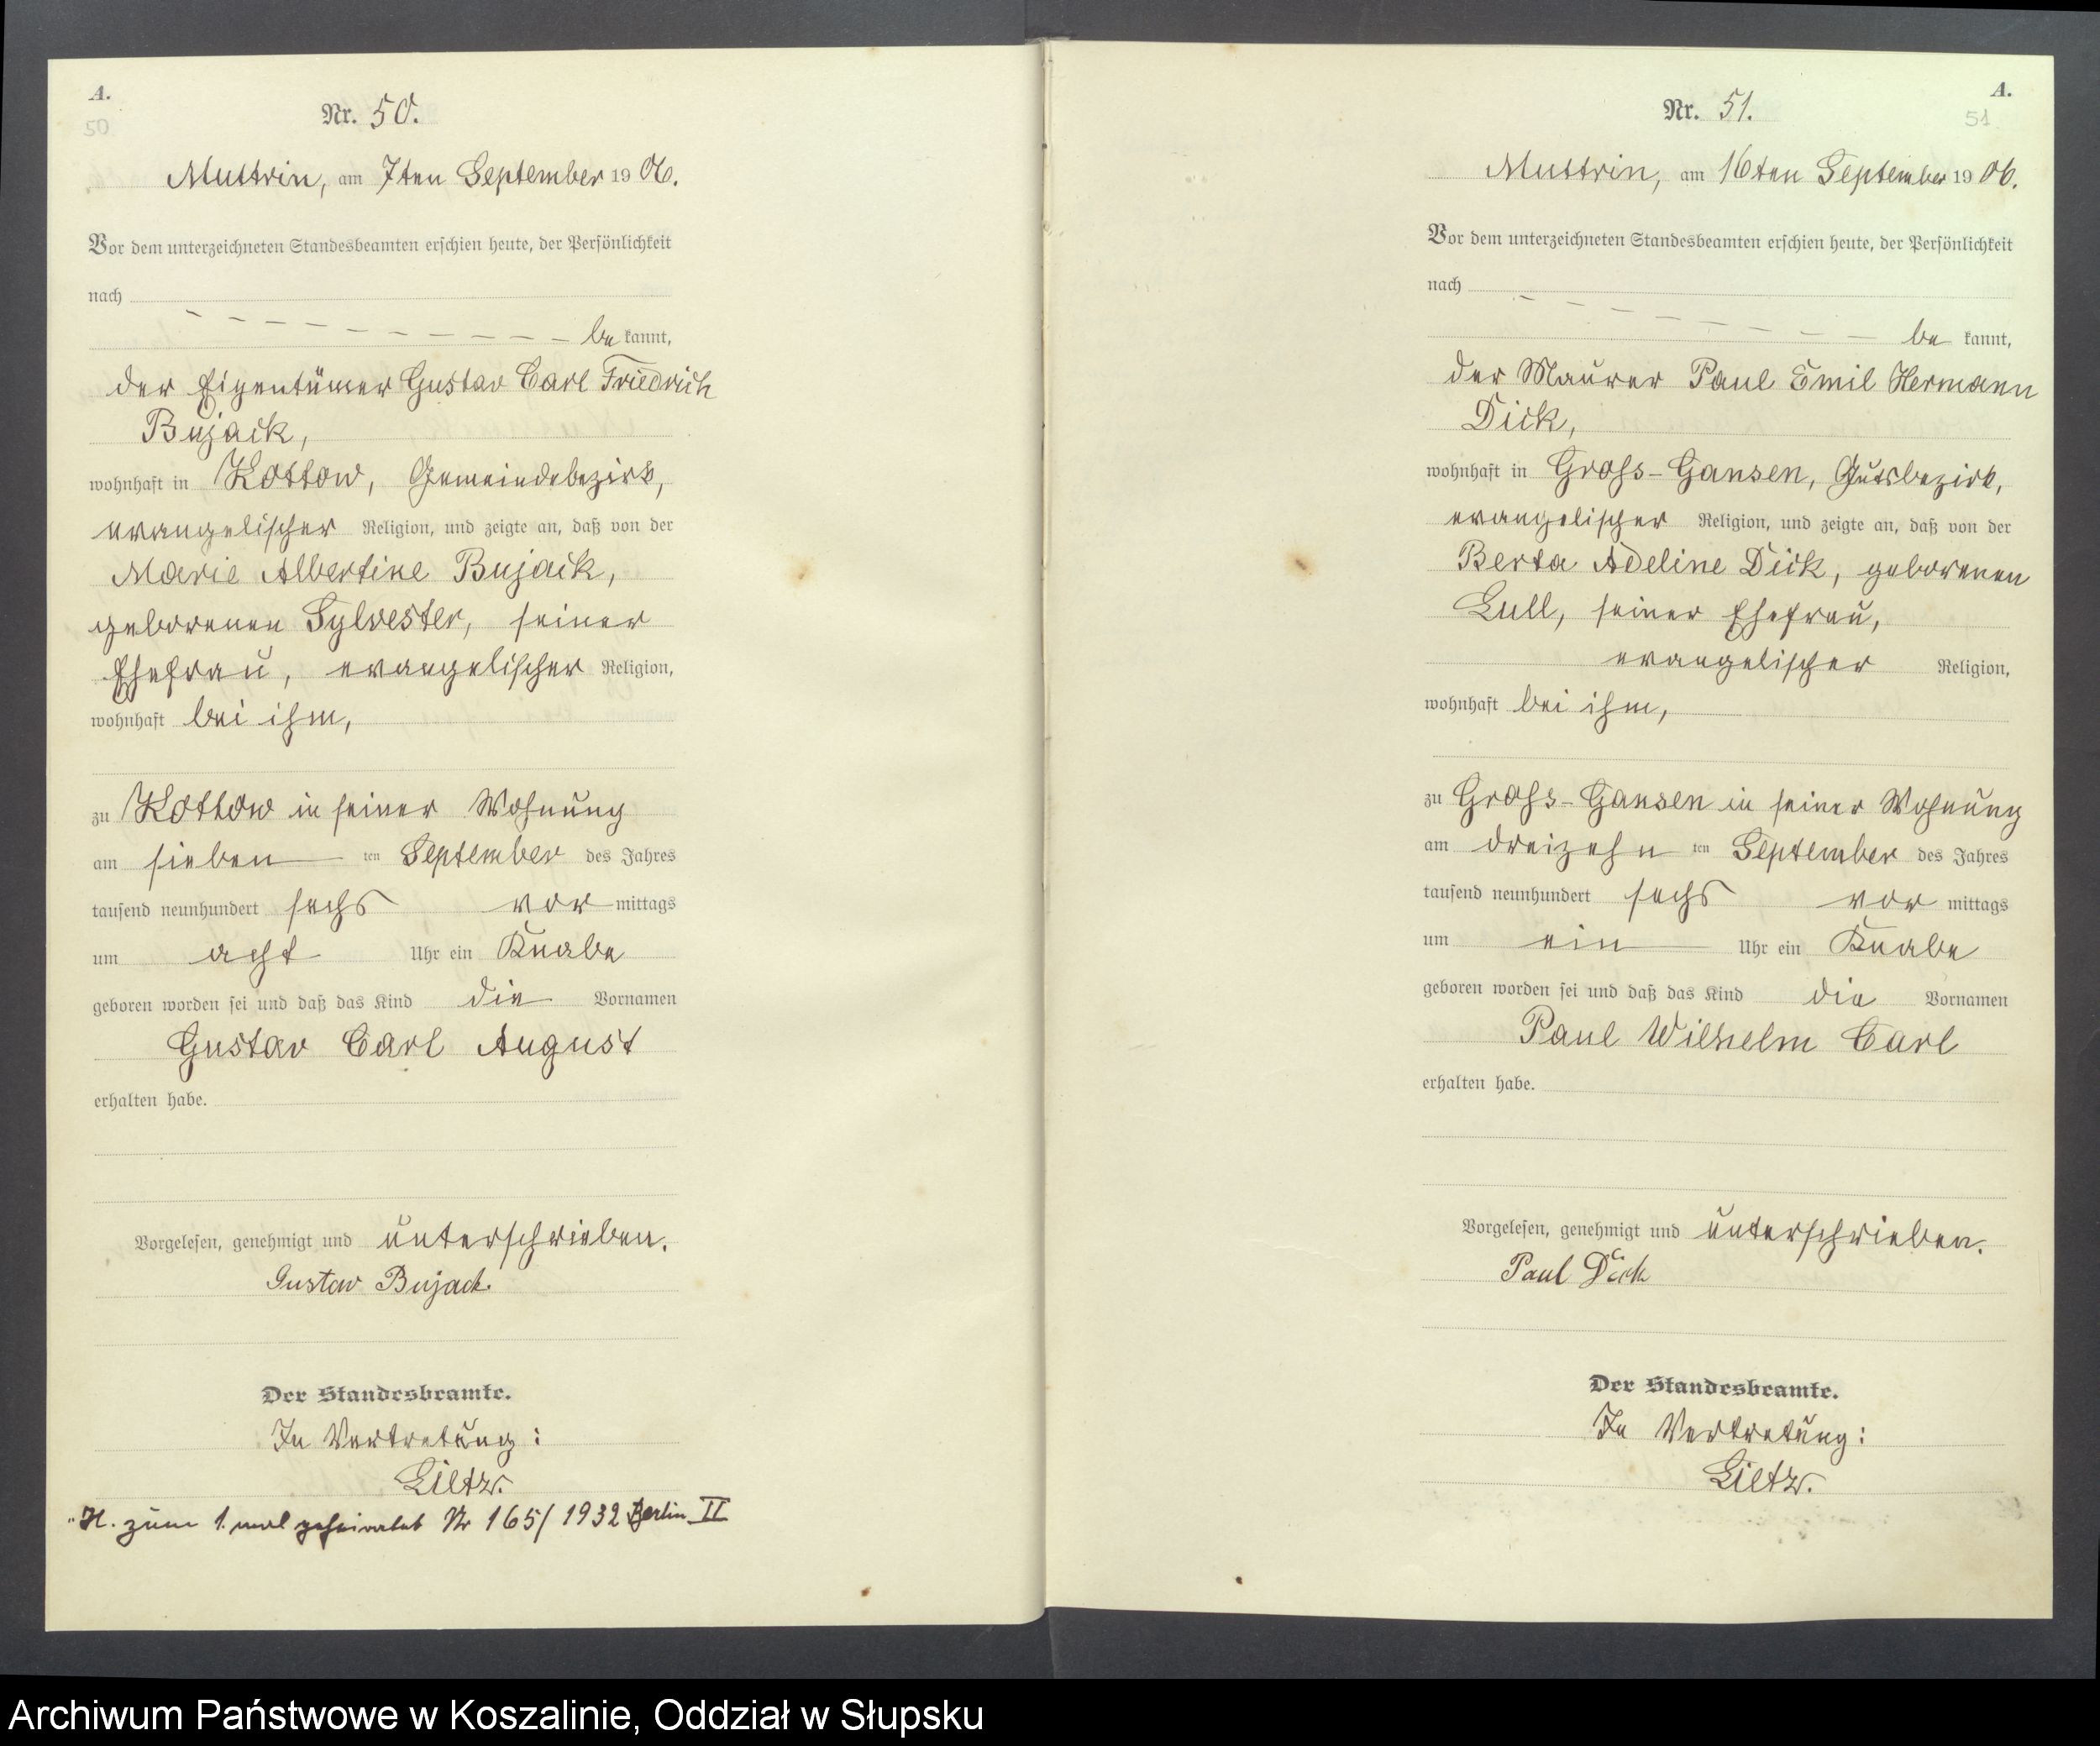 A.
50
Nr. 50.
Muttrin, am 7ten September 1906.
Vor dem unterzeichneten Standesbeamten erschien heute, der Persönlichkeit
nach
be kannt,
der Eigentümer Gustav Carl Friedrich
Bujack,
wohnhaft in Kottow, Gemeindebezirk,
evangelischer Religion, und zeigte an, daß von der
Marie Albertine Bujack,
geborenen Sylvester, seiner
Ehefrau, evangelischer Religion,
wohnhaft bei ihm,
zu Kottow in seiner Wohnung
am sieben ten September des Jahres
tausend neunhundert sechs vor mittags
um acht Uhr ein Knabe
geboren worden sei und daß das Kind die Vornamen
Gustav Carl August
erhalten habe.
Vorgelesen, genehmigt und unterschrieben.
Gustav Bujack.
Der Standesbeamte.
In Vertretung:
Lietz.
H. zum 1. mal geheiratet Nr 165/1932 Berlin II
A.
51
Nr. 51.
Muttrin, am 16ten September 1906.
Vor dem unterzeichneten Standesbeamten erschien heute, der Persönlichkeit
nach
be kannt,
der Maurer Paul Emil Hermann
Dick,
wohnhaft in Groß-Gansen, Gutsbezirk,
evangelischer Religion, und zeigte an, daß von der
Berta Adeline Dick, geborenen
Lull, seiner Ehefrau,
evangelischer Religion,
wohnhaft bei ihm,
zu Groß-Gansen in seiner Wohnung
am dreizehn ten September des Jahres
tausend neunhundert sechs vor mittags
um ein Uhr ein Knabe
geboren worden sei und daß das Kind die Vornamen
Paul Wilhelm Carl
erhalten habe.
Vorgelesen, genehmigt und unterschrieben.
Paul Dick
Der Standesbeamte.
In Vertretung:
Lietz.
Archiwum Państwowe w Koszalinie, Oddział w Słupsku